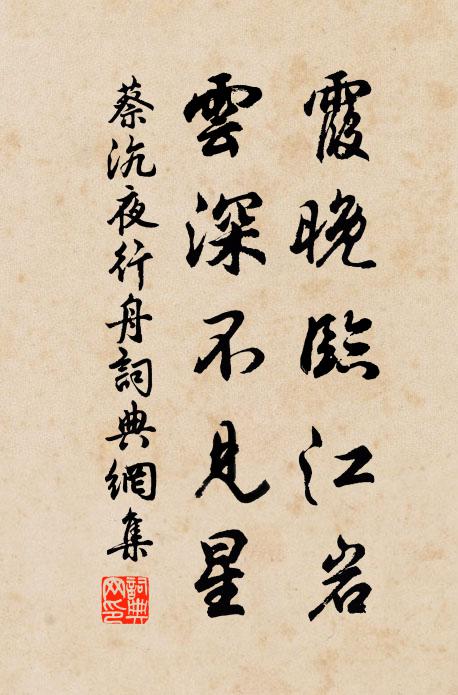 霞晚臨江岩
雲深不見星
蔡沆夜行舟詞典網集
詞典網印